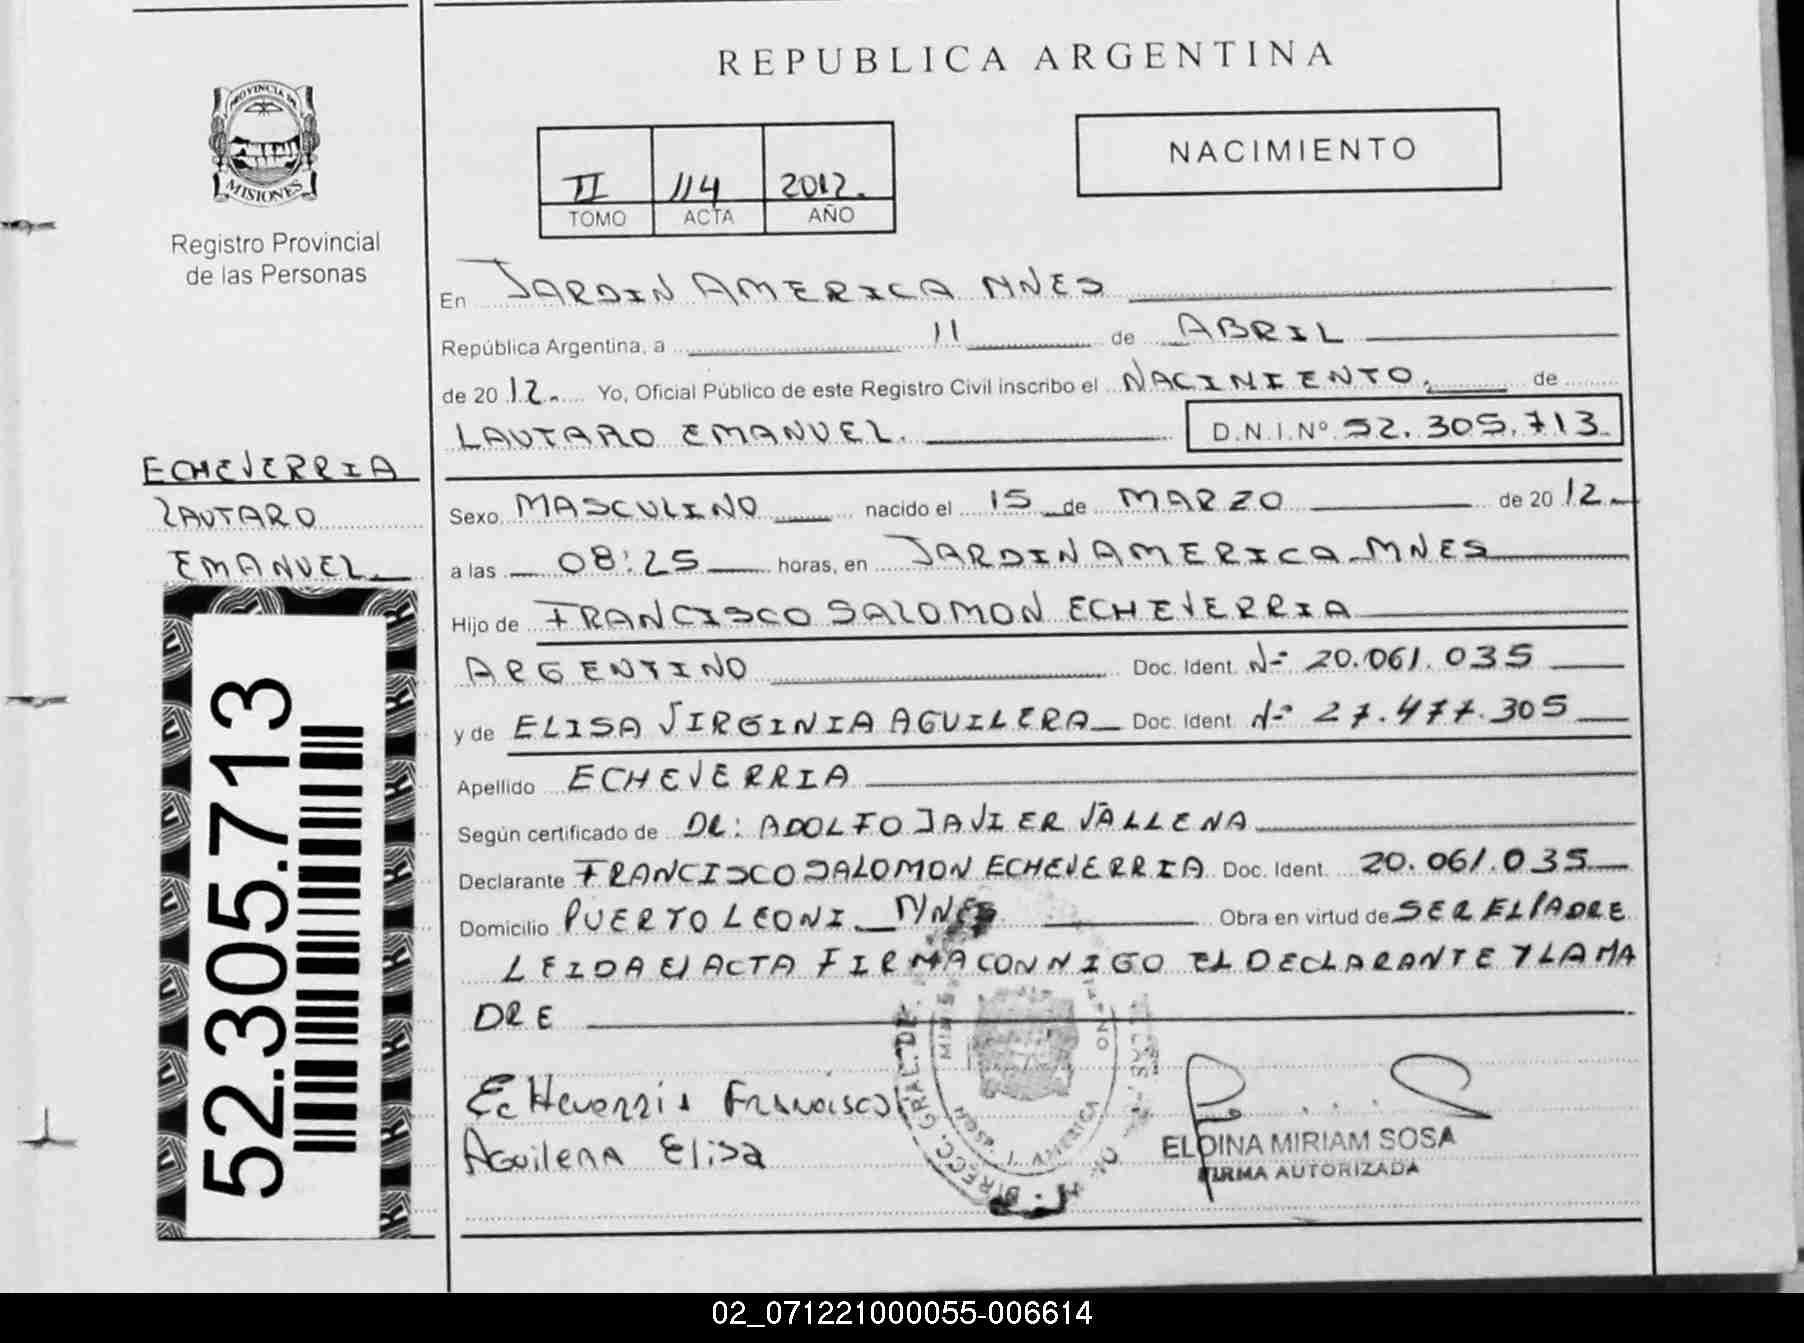 REPUBLICA ARGENTINA
PROVINCIA DE
MISIONES
Registro Provincial
de las Personas
II 114 2012.
TOMO ACTA AÑO
NACIMIENTO
En JARDIN AMERICA MNES
República Argentina, a 11 de ABRIL
de 20 12. Yo, Oficial Público de este Registro Civil inscribo el NACIMIENTO. de
LAUTARO EMANUEL. D.N.I.Nº 52.305.713
ECHEVERRIA
LAUTARO
EMANUEL
Sexo MASCULINO nacido el 15 de MARZO de 20 12.
a las 08:25 horas, en JARDIN AMERICA - MNES
Hijo de FRANCISCO SALOMON ECHEVERRIA
ARGENTINO Doc. Ident. Nº 20.061.035
y de ELISA VIRGINIA AGUILERA Doc. Ident. Nº 27.477.305
Apellido ECHEVERRIA
Según certificado de DR: ADOLFO JAVIER VALLENA
Declarante FRANCISCO SALOMON ECHEVERRIA Doc. Ident. 20.061.035
Domicilio PUERTO LEONI MNES Obra en virtud de SER EL PADRE
LEIDA EL ACTA FIRMA CONMIGO EL DECLARANTE Y LA MA
DRE
Echeverria Francisco
Aguilera Elisa
ELDINA MIRIAM SOSA
FIRMA AUTORIZADA
DIRECC. GRAL. DE
AMERICA
52.305.713
02_071221000055-006614